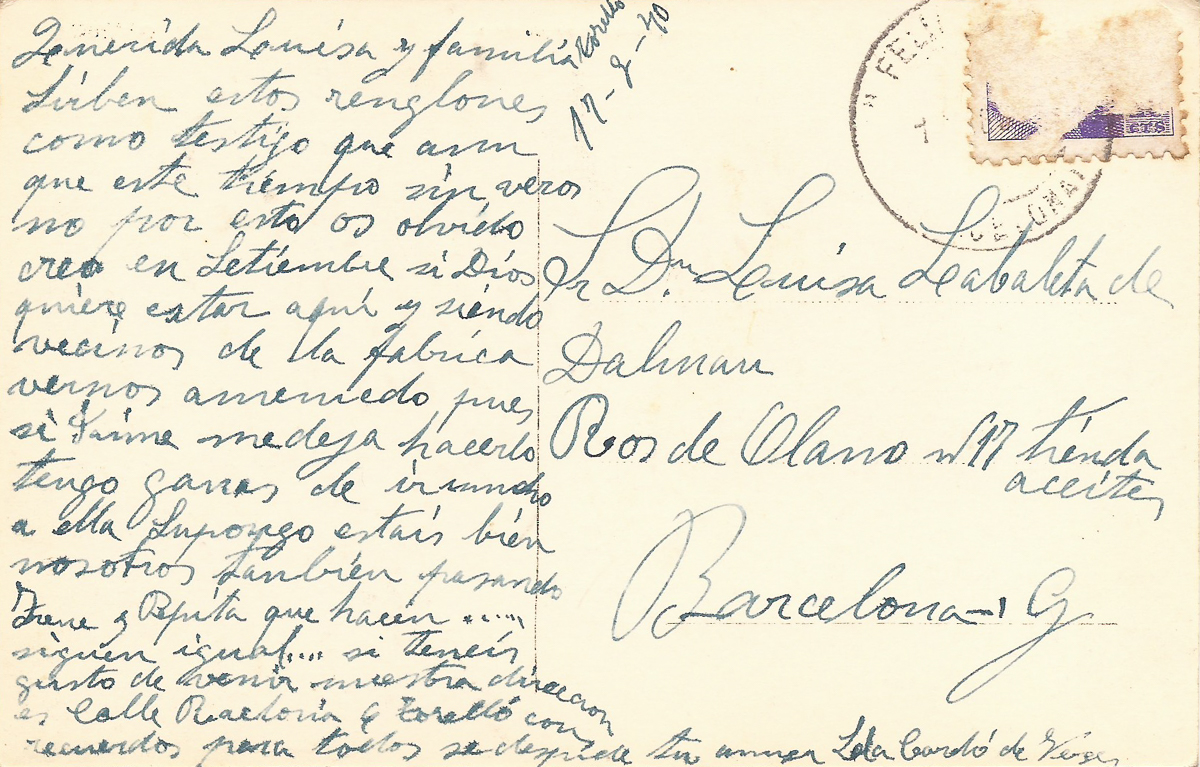 Torelló
17-9-40
Querida Louisa y familia
Sirben estos renglones
como testigo que aun
que este tiempo sin veros
no por esto os olvido
creo en Setiembre si Dios
quiere estar aquí y siendo
vecinos de la fabrica
vernos amenudo pues
si Jaime medeja hacerlo
tengo ganas de ir
a ella Supongo estais bien
nosotros tanbién pasando
Irene y Pepita que hacen .....
siguen igual.... si teneis
gusto de venir nuestra direccion
es Calle 4 Torelló con
recuerdos para todos se despide tu amiga Lola Cardó de
FELI
CTS
Sr Dña Louisa Labaleta de
Dalmau
Ros de Olano nº 17 tienda
aceites
Barcelona - G